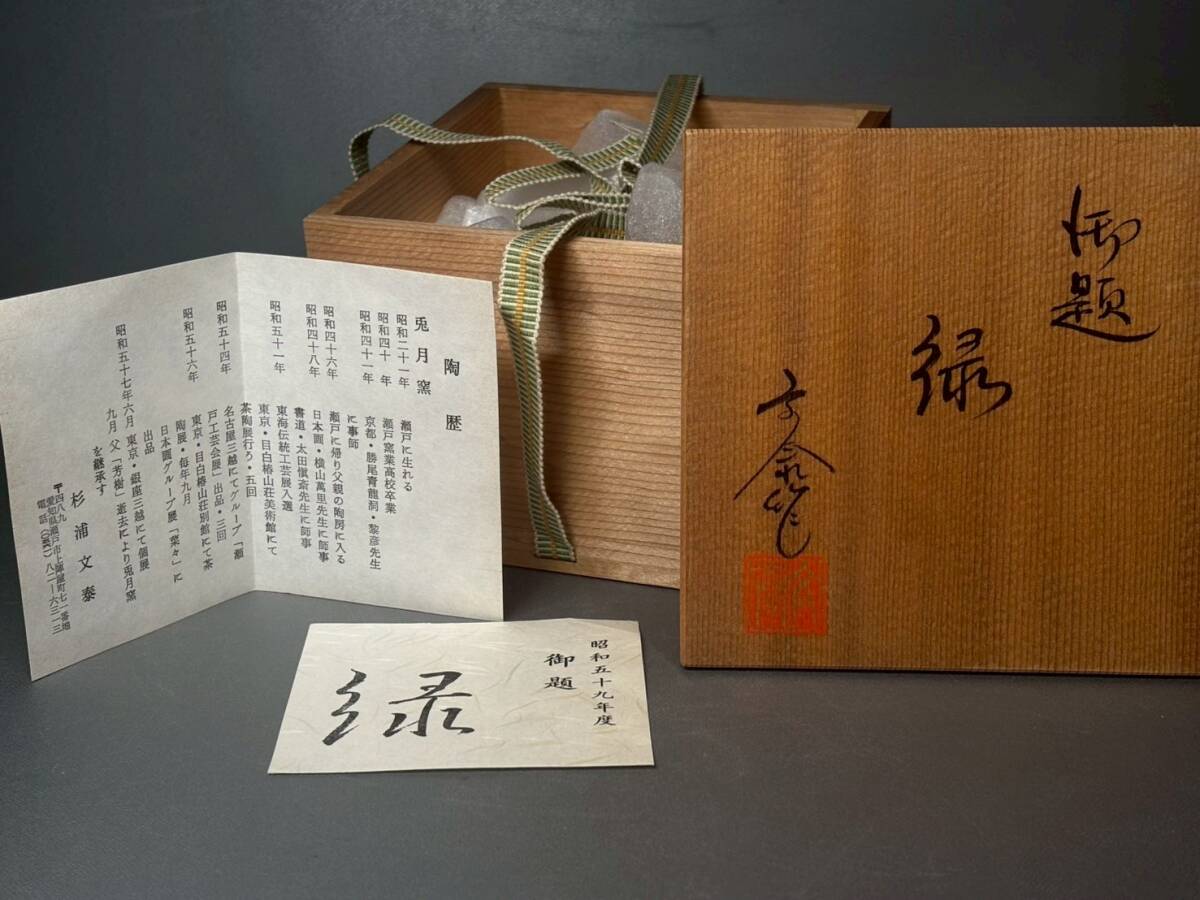 陶歴
兎月窯
昭和二十一年 瀬戸に生れる
昭和四十年 瀬戸窯業高校卒業
昭和四十一年 京都・勝尾青龍洞・黎彦先生
に事師
昭和四十六年 瀬戸に帰り父親の陶房に入る
昭和四十八年 日本画・横山萬里先生に師事
書道・太田愼斎先生に師事
昭和五十一年 東海伝統工芸展入選
東京・目白椿山荘美術館にて
茶陶展行う・五回
昭和五十四年 名古屋三越にてグループ「瀬
戸工芸会展」出品・三回
昭和五十六年 東京・目白椿山荘別館にて茶
陶展・毎年九月
日本画グループ展「菜々」に
出品
昭和五十七年六月 東京・銀座三越にて個展
九月 父「芳樹」逝去により兎月窯
を継承す
杉浦文泰
〒四八九
愛知県瀬戸市上陣屋町七一番地
電話(〇五六一)八二―六三一三
昭和五十九年度
御題
緑
御題
緑